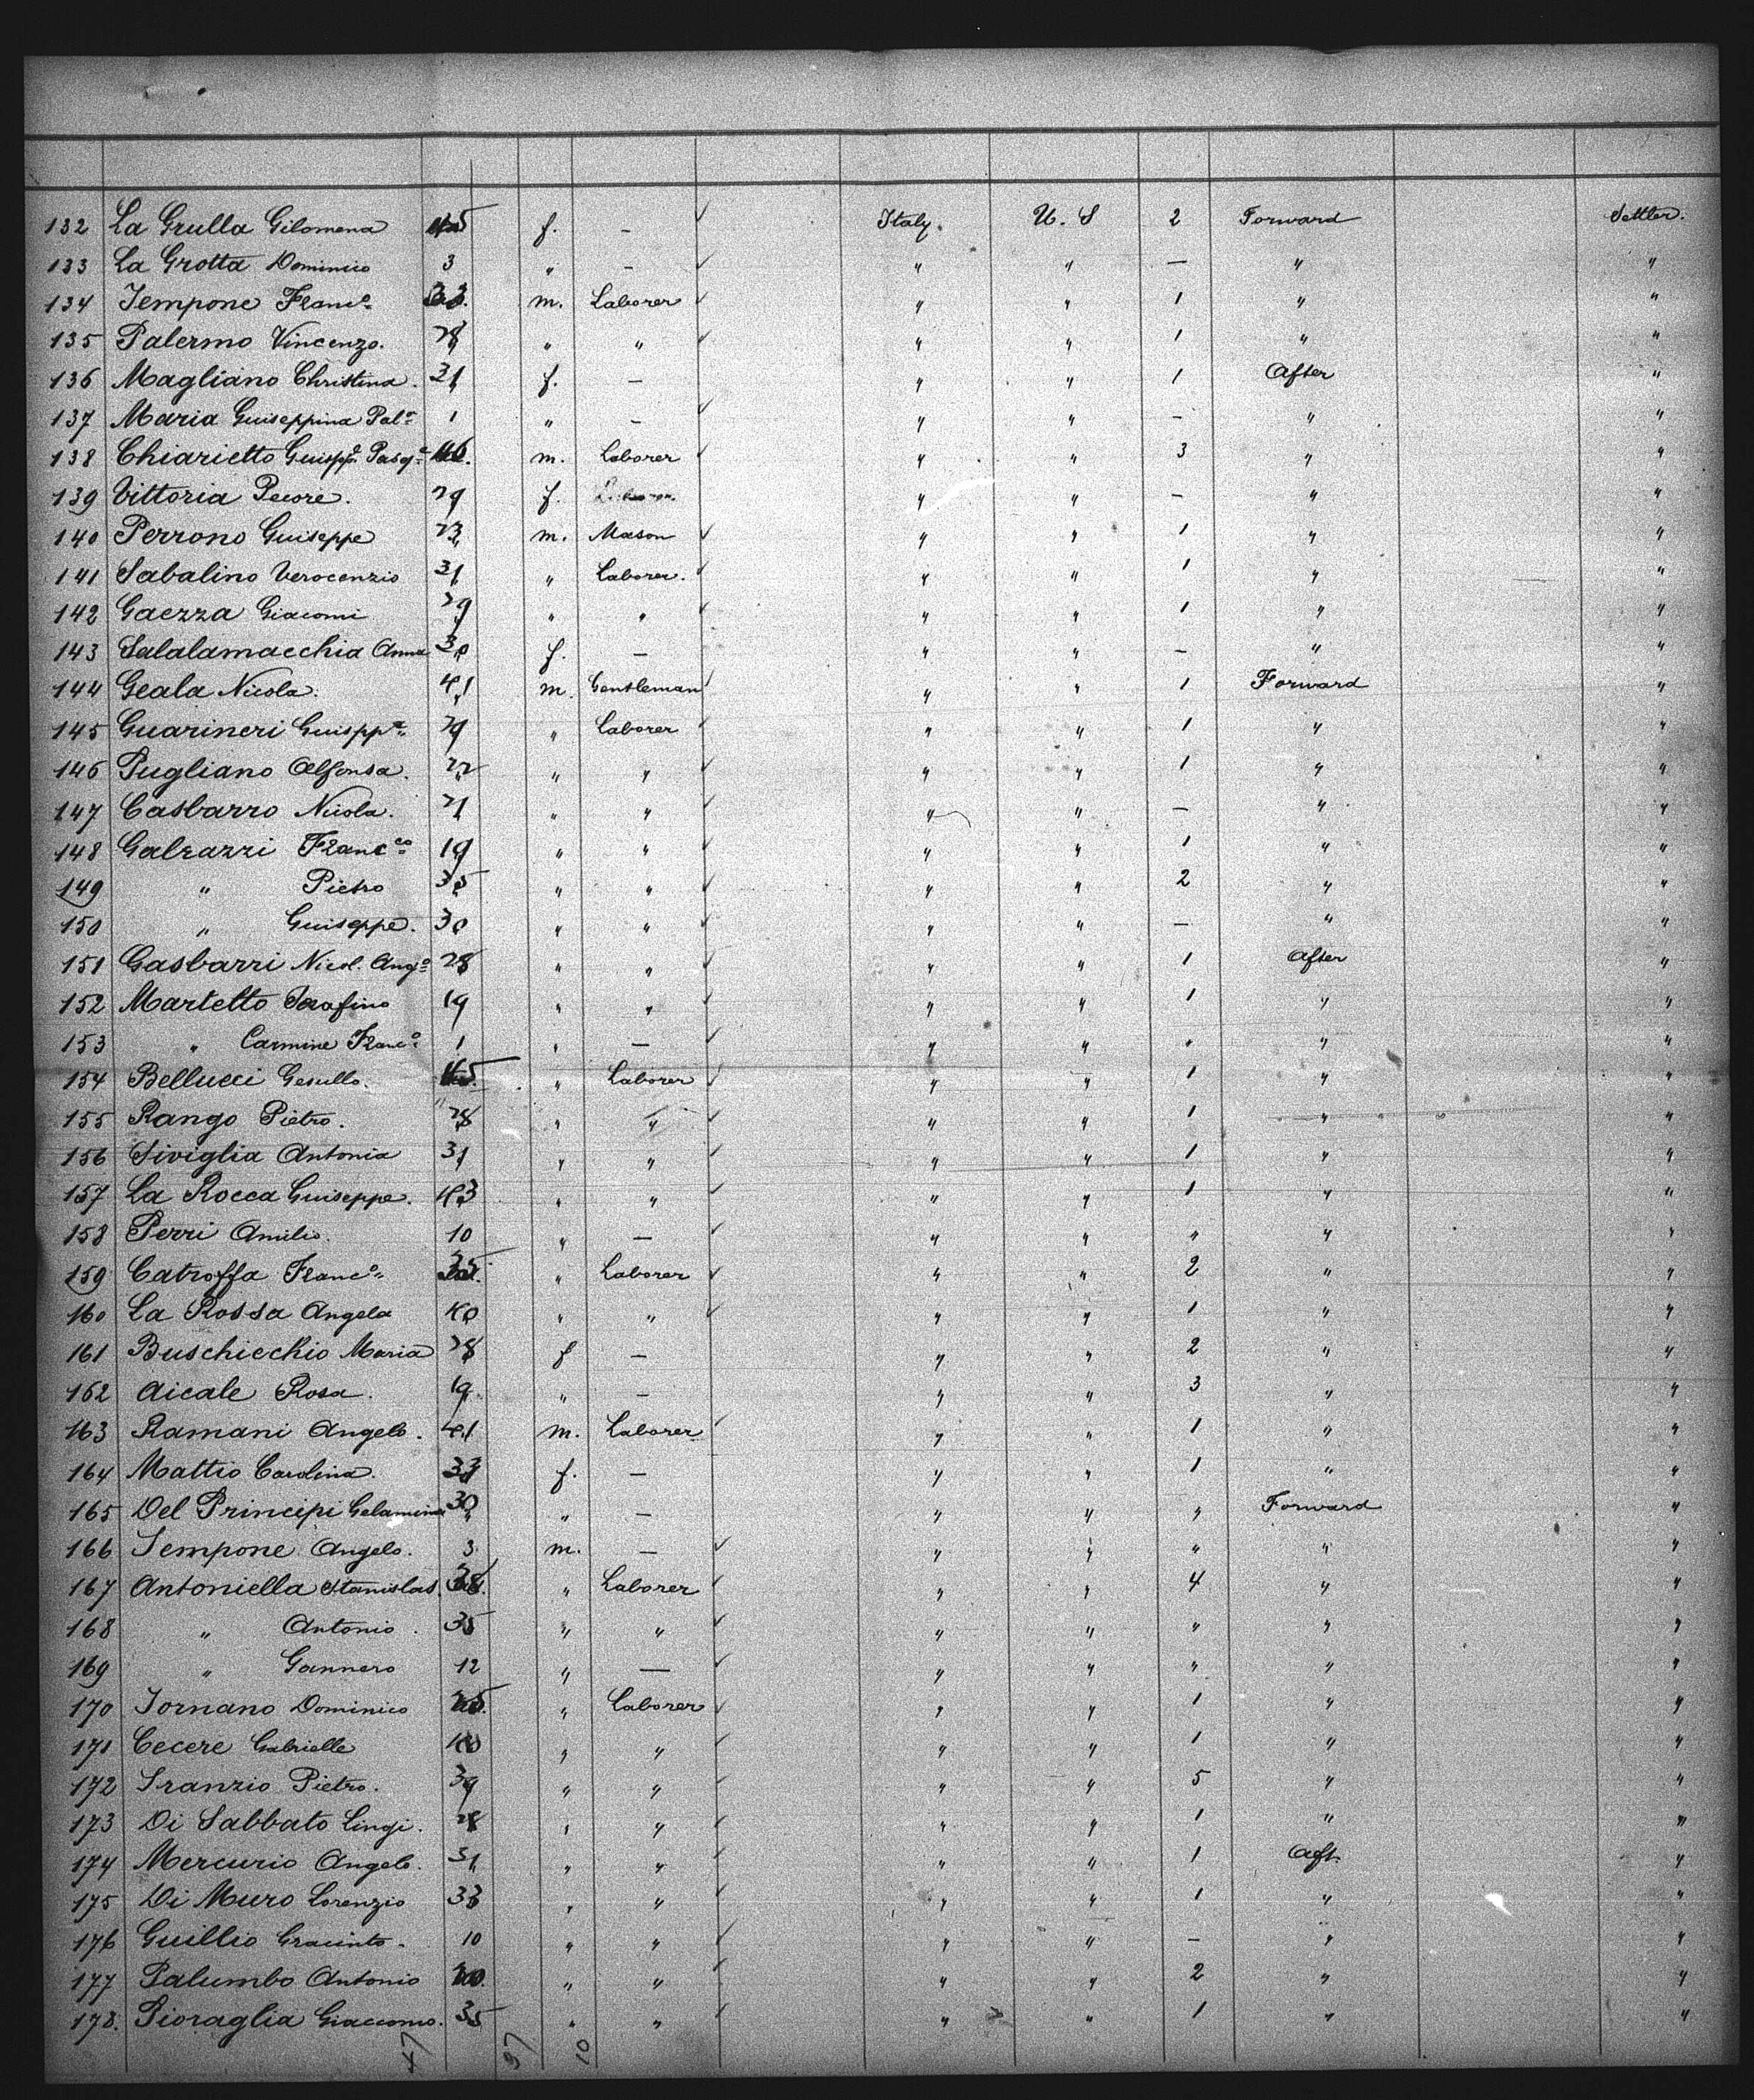 132 La Grulla Gilomena 45 f. – ✓ Italy. U. S 2 Forward Settler.
133 La Grotta Dominico 3 " – ✓ " " — " "
134 Tempone Franc.º m. Laborer ✓ " " 1 " "
135 Palermo Vincenzo. 28 " " ✓ " " 1 " "
136 Magliano Christina. 31 f. – " " 1 After "
137 Maria Guiseppina Pal.º 1 " – ✓ " " – " "
138 Chiarietto Guispp.ª Pasq.º m. Laborer ✓ " " 3 " "
139 Vittoria Pecore. 29 f. " " – " "
140 Perrono Guiseppe 23 m. Mason ✓ " " 1 " "
141 Sabalino Verocenzio 31 " Laborer. ✓ " " 1 " "
142 Gaezza Giacomi 29 " " ✓ " " 1 " "
143 Salalamacchia Anna 30 f. – " " – " "
144 Geala Nicola. 41 m. Gentleman ✓ " " 1 Forward "
145 Guarineri Guispp.ª 29 " Laborer ✓ " " 1 " "
146 Pugliano Alfonsa. 22 " " ✓ " " 1 " "
147 Casbarro Nicola. 21 " " ✓ " " – " "
148 Galzazzi Franc.co 19 " " ✓ " " 1 " "
149 " Pietro 35 " " ✓ " " 2 " "
150 " Guiseppe. 30 " " ✓ " " – " "
151 Gasbarri Nicol. Ang.º 28 " " ✓ " " 1 After "
152 Martetto Serafino 19 " " ✓ " " 1 " "
153 " Carmine Franc.º 1 " — ✓ " " " " "
154 Bellucci Gesullo. 45 " Laborer ✓ " " 1 " "
155 Rango Pietro. 28 " " ✓ " " 1 " "
156 Siviglia Antonia 31 " " ✓ " " 1 " "
157 La Rocca Guiseppe. 43 " " ✓ " " 1 " "
158 Perri Amilio. 10 " — ✓ " " " " "
159 Catroffa Franc.º 35 " Laborer ✓ " " 2 " "
160 La Rossa Angela 40 " " ✓ " " 1 " "
161 Buschiechio Maria 28 f – " " 2 " "
162 Aicale Rosa. 19 " – " " 3 " "
163 Ramani Angelo. 41 m. Laborer ✓ " " 1 " "
164 Mattio Carolina. f. – " " 1 " "
165 Del Principi Gelamina 30 " – " " " Forward "
166 Tempone Angelo. 3 m. — ✓ " " " " "
167 Antoniella Stanislas. 38 " Laborer ✓ " " 4 " "
168 " Antonio. 35 " " ✓ " " " " "
169 " Gannero 12 " — ✓ " " " " "
170 Tornano Dominico " Laborer ✓ " " 1 " "
171 Cecere Gabrielle " " ✓ " " 1 " "
172 Tranzio Pietro. 39 " " ✓ " " 5 " "
173 Di Sabbato Lingi. 28 " " ✓ " " 1 " "
174 Mercurio Angelo. 31 " " ✓ " " 1 Aft. "
175 Di Muro Lorenzio 33 " " ✓ " " 1 " "
176 Guillio Gracinto. 10 " " ✓ " " – " "
177 Palumbo Antonio " " ✓ " " 2 " "
178. Pioraglia Giaccomo. 35 " " ✓ " " 1 " "
47 37 10